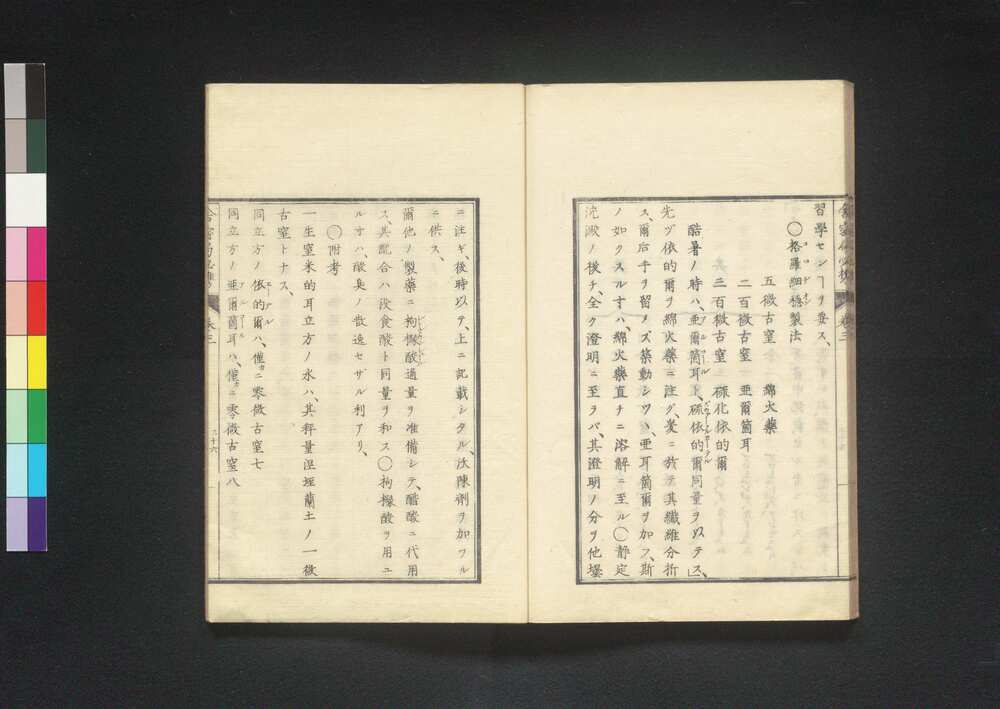 習學センヿヲ要ス、
〇格羅細樢製法
コロヂオン
五微古窒 綿火藥
二百微古窒 亜爾箇耳
三百微古窒 硫化依的爾
酷暑ノ時ハ、亜爾箇耳ト、硫依的爾同量ヲ以テス、
アルコール
先ヅ依的爾ヲ綿火藥ニ注グ、爰ニ於テ其纖維分折
ス、爾后手ヲ留メズ築動シツヽ、亜耳箇爾ヲ加フ、斯
ノ如クスル寸ハ、綿火藥直チニ溶解ニ至ル〇静定
沈澱ノ後チ、全ク澄明ニ至ラバ、其澄明ノ分ヲ他壜
ニ注ギ、後時以テ、上ニ記載シタル、沃陳剤ヲ加フル
ニ供ス、
爾他ノ製藥ニ拘櫞酸過量ヲ准備シテ、醋酸ニ代用
ス、其配合ハ没食酸ト同量ヲ和ス〇拘櫞酸ヲ用ユ
ル寸ハ、酸臭ノ散逸セザル利アリ、
〇附考
一生窒米的耳立方ノ水ハ、其秤量涅垤蘭土ノ一微
古窒トナス、
同立方ノ依的爾ハ、僅カニ零微古窒七
エーテル
同立方ノ亜爾箇耳ハ、僅カニ零微古窒八
アルコール
卷三
二十六